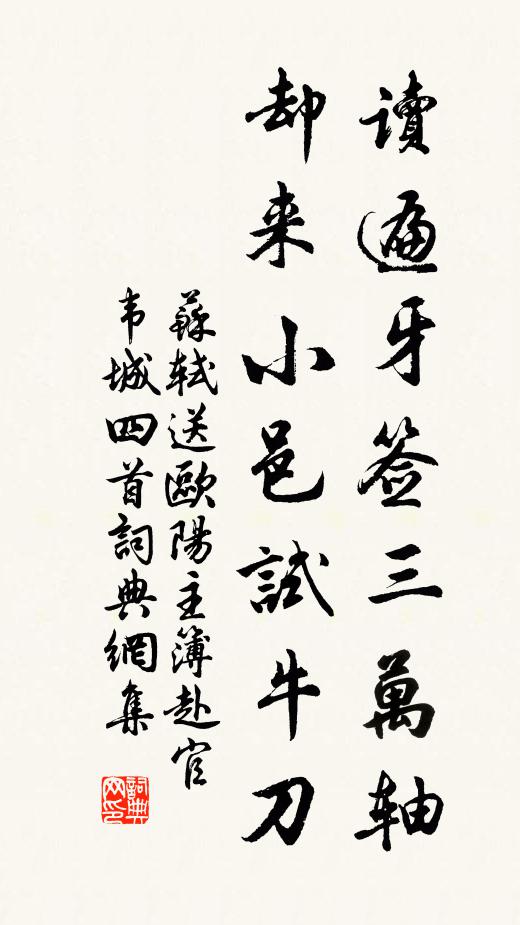 讀遍牙签三萬軸
却来小邑試牛刀
蘇軾送歐陽主簿赴官
韦城四首詞典網集
詞典
网印